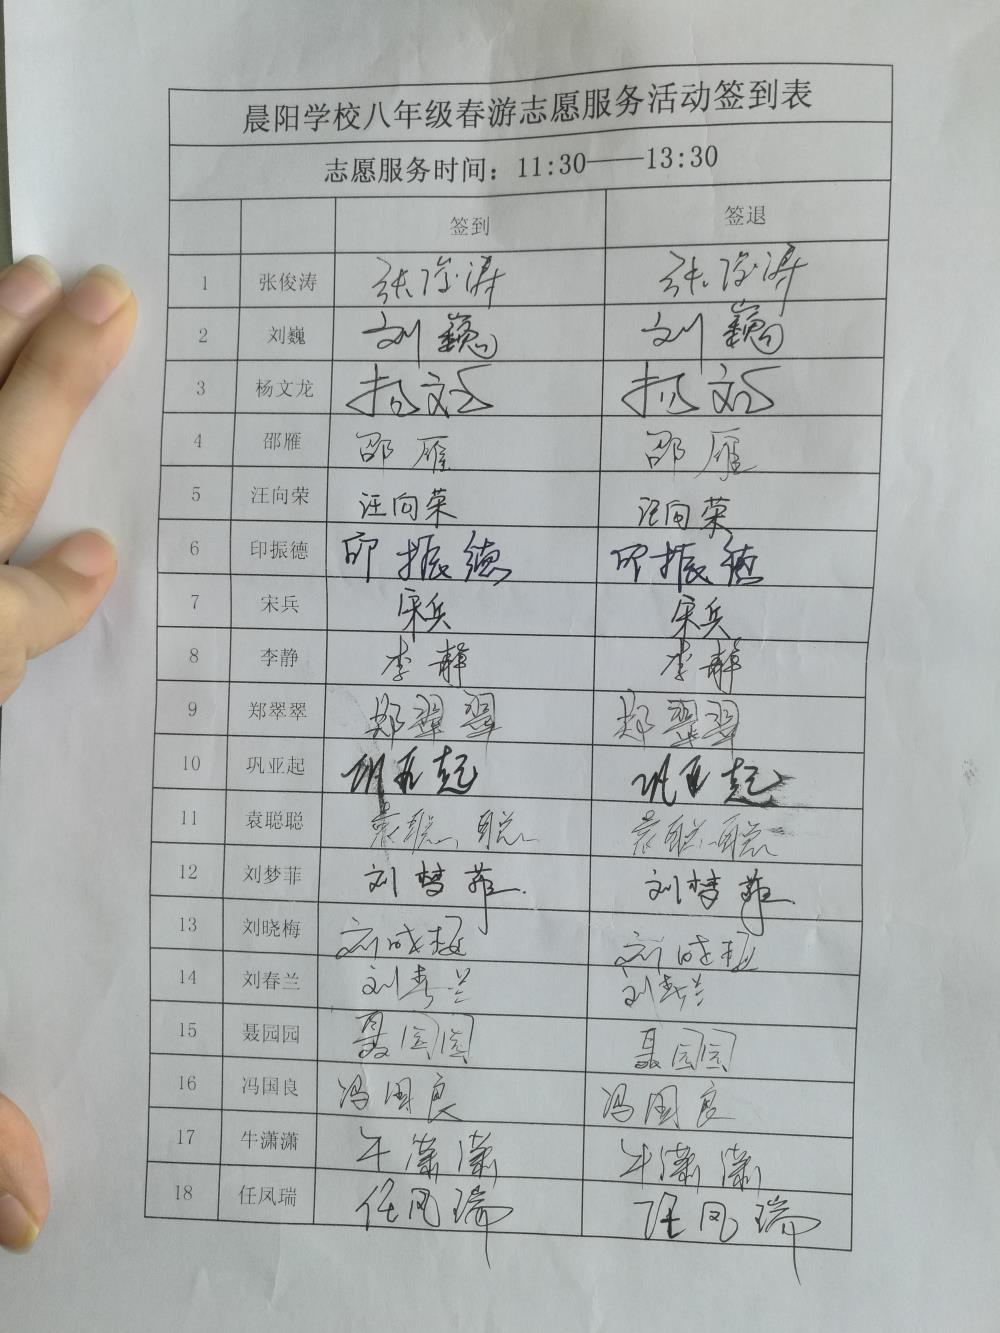 晨阳学校八年级春游志愿服务活动签到表
志愿服务时间：11:30——13:30
签到 签退
1 张俊涛 张俊涛 张俊涛
2 刘巍 刘巍 刘巍
3 杨文龙 杨文龙 杨文龙
4 邵雁 邵雁 邵雁
5 汪向荣 汪向荣 汪向荣
6 印振德 印振德 印振德
7 宋兵 宋兵 宋兵
8 李静 李静 李静
9 郑翠翠 郑翠翠 郑翠翠
10 巩亚起 巩亚起 巩亚起
11 袁聪聪 袁聪聪 袁聪聪
12 刘梦菲 刘梦菲 刘梦菲
13 刘晓梅 刘晓梅 刘晓梅
14 刘春兰 刘春兰 刘春兰
15 聂园园 聂园园 聂园园
16 冯国良 冯国良 冯国良
17 牛潇潇 牛潇潇 牛潇潇
18 任凤瑞 任凤瑞 任凤瑞